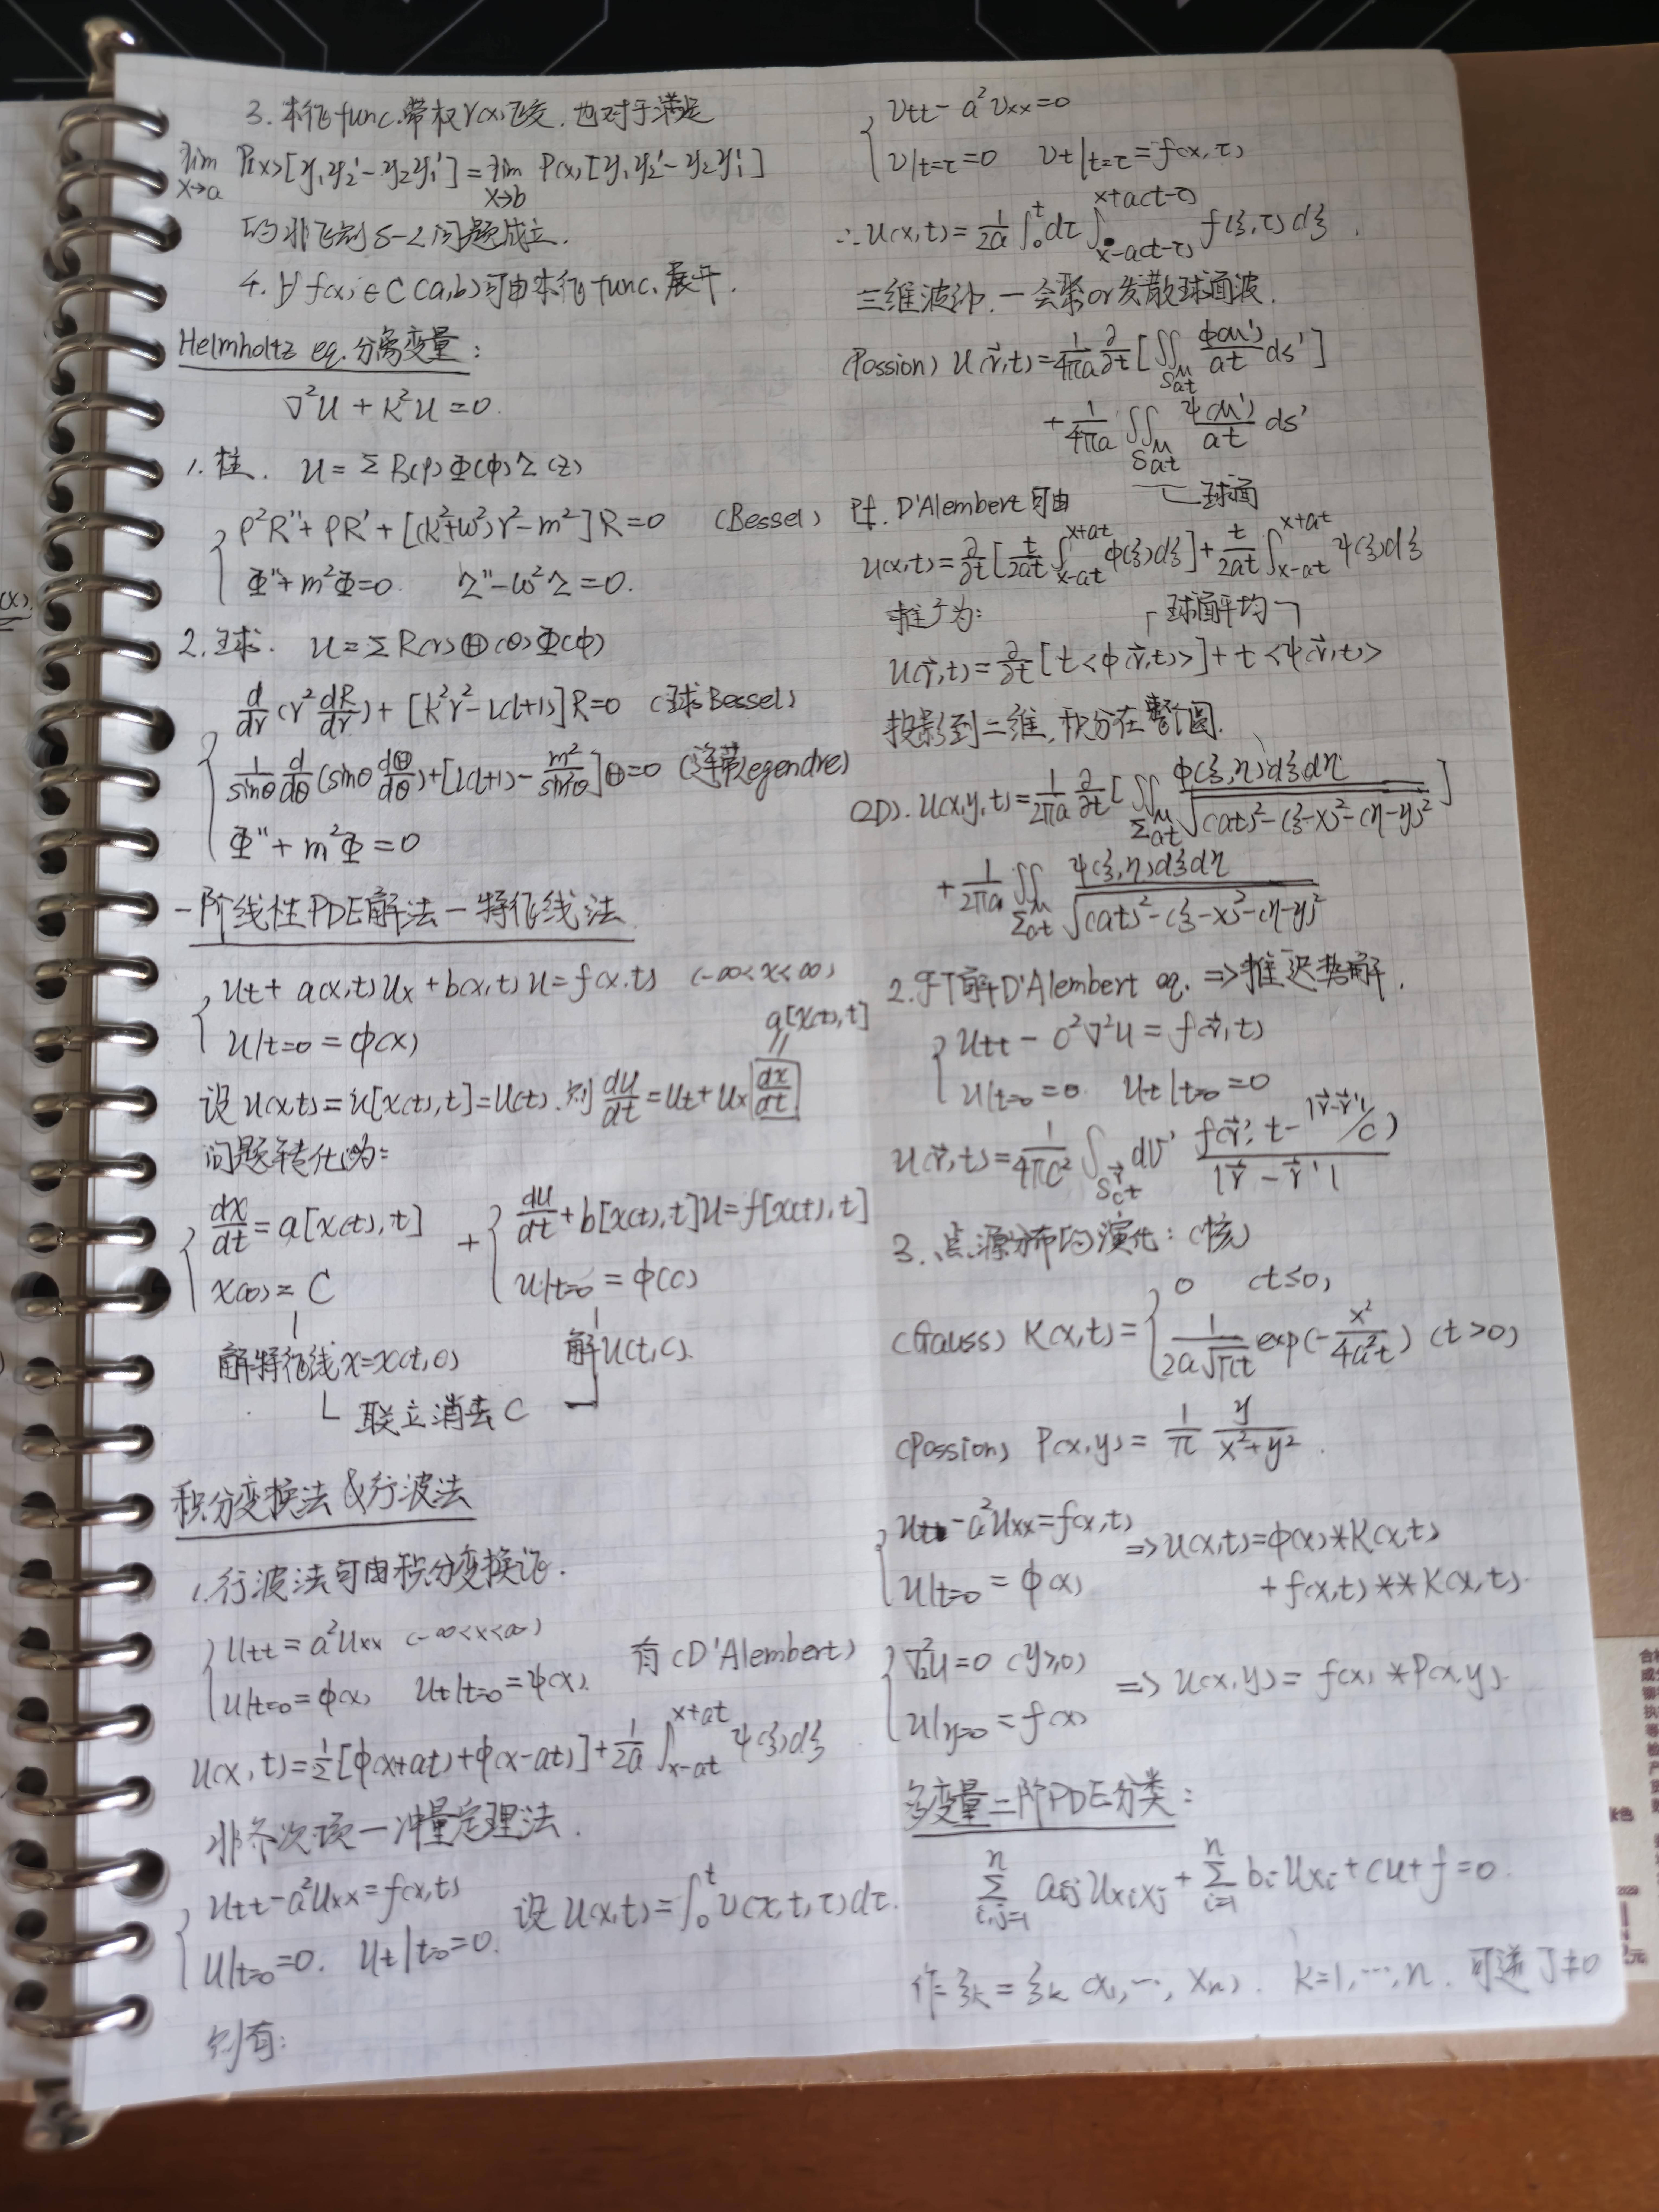 3. 本征func.带权r(x)正交. 也对于满足
lim_{x→a} P(x)[y₁y₂'-y₂y₁'] = lim_{x→b} P(x)[y₁y₂'-y₂y₁']
的非正则S-L问题成立.
4. ∀ f(x)∈C(a,b)可由本征func.展开.
Helmholtz eq.分离变量:
∇²u + k²u = 0.
1. 柱. u = Σ R(ρ)Φ(φ)Z(z)
ρ²R''+ρR'+[(k²+ω²)r²-m²]R=0 (Bessel)
Φ''+m²Φ=0. Z''-ω²Z=0.
2. 球. u=ΣR(r)Θ(θ)Φ(φ)
d/dr(r² dR/dr)+[k²r²-l(l+1)]R=0 (球Bessel)
1/sinθ d/dθ(sinθ dΘ/dθ)+[l(l+1)-m²/sin²θ]Θ=0 (连带Legendre)
Φ''+m²Φ=0
一阶线性PDE解法-特征线法
ut+a(x,t)ux+b(x,t)u=f(x,t) (-∞<x<∞)
u|t=0 = φ(x)
a[x(t),t]
设u(x,t)=u[x(t),t]=U(t).则 du/dt=ut+ux dx/dt
问题转化为:
dx/dt=a[x(t),t] + du/dt+b[x(t),t]U=f[x(t),t]
x(0)=C U|t=0=φ(C)
解特征线x=x(t,c) 解U(t,C).
联立消去C
积分变换法&行波法
1.行波法可由积分变换证.
utt=a²uxx (-∞<x<∞)
u|t=0=φ(x) ut|t=0=ψ(x). 有(D'Alembert)
u(x,t)=1/2[φ(x+at)+φ(x-at)]+1/2a ∫_{x-at}^{x+at} ψ(ξ)dξ
非齐次项-冲量定理法.
utt-a²uxx=f(x,t)
u|t=0=0. ut|t=0=0. 设u(x,t)=∫₀ᵗ v(x,t,τ)dτ.
则有:
vtt-a²vxx=0
v|t=τ=0 vt|t=τ=f(x,τ)
∴u(x,t)=1/2a ∫₀ᵗdτ ∫_{x-a(t-τ)}^{x+a(t-τ)} f(ξ,τ)dξ.
三维波动.-会聚or发散球面波.
(Possion) u(r⃗,t)=1/4πa ∂/∂t[∬_{S_at^M} φ(M')/at ds']
+1/4πa ∬_{S_at^M} ψ(M')/at ds'
球面
Pf. D'Alembert可由
u(x,t)=∂/∂t[t/2at ∫_{x-at}^{x+at} φ(ξ)dξ]+t/2at ∫_{x-at}^{x+at} ψ(ξ)dξ
推广为: 球面平均
u(r⃗,t)=∂/∂t[t<φ(r⃗,t)>]+t<ψ(r⃗,t)>
投影到二维,积分在整个圆.
(2D). u(x,y,t)=1/2πa ∂/∂t[∬_{Σ_at^M} φ(ξ,η)dξdη/√((at)²-(ξ-x)²-(η-y)²)]
+1/2πa ∬_{Σ_at^M} ψ(ξ,η)dξdη/√((at)²-(ξ-x)²-(η-y)²)
2.FT解D'Alembert eq. ⇒推迟势解.
utt-c²∇²u=f(r⃗,t)
u|t=0=0. ut|t=0=0
u(r⃗,t)=1/4πc² ∫_{S_ct^r⃗} dV' f(r⃗',t-|r⃗-r⃗'|/c)/|r⃗-r⃗'|
3.点源分布的演化:(核)
(Gauss) K(x,t)={0 (t≤0)
1/(2a√πt) exp(-x²/4a²t) (t>0)
(Possion) P(x,y)=1/π y/(x²+y²).
ut-a²uxx=f(x,t) ⇒u(x,t)=φ(x)*K(x,t)
u|t=0=φ(x) +f(x,t)**K(x,t).
∇₂²u=0 (y≥0)
⇒u(x,y)=f(x)*P(x,y).
u|y=0=f(x)
多变量二阶PDE分类:
Σ_{i,j=1}^n aij uxixj+Σ_{i=1}^n bi uxi+cu+f=0.
作ξk=ξk(x₁,…,xn). k=1,…,n.可逆J≠0